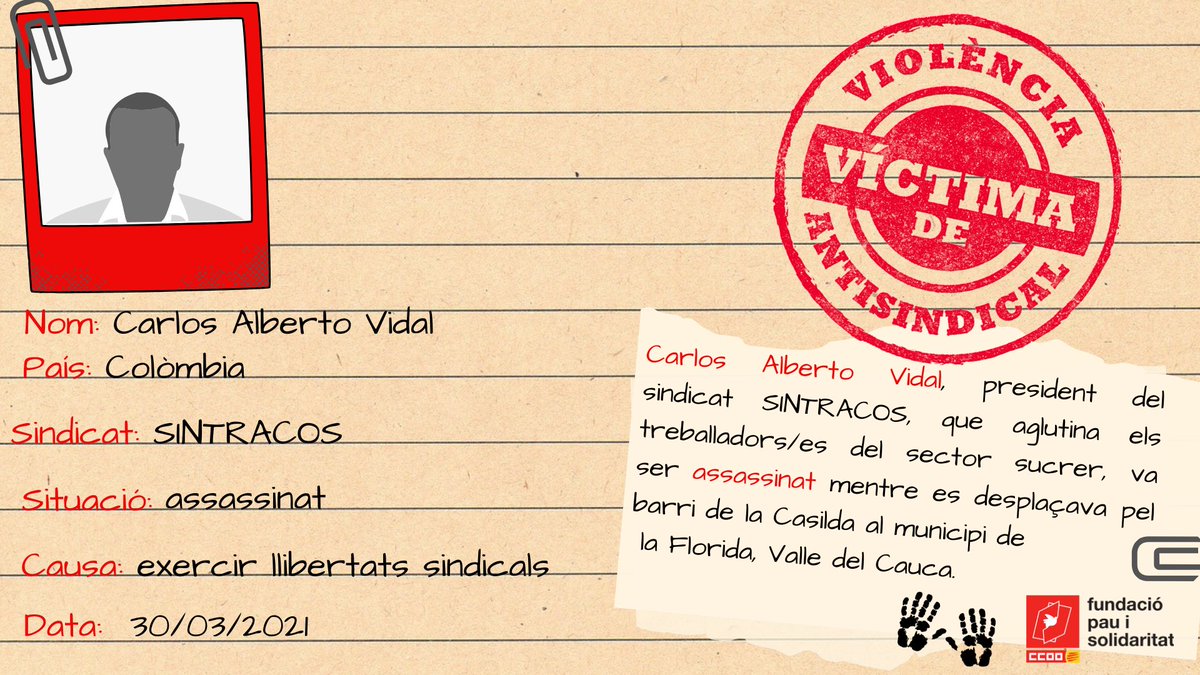 VIOLÈNCIA
VÍCTIMA
DE
ANTISINDICAL
Nom: Carlos Alberto Vidal
País: Colòmbia
Sindicat: SINTRACOS
Situació: assassinat
Causa: exercir llibertats sindicals
Data: 30/03/2021
Carlos Alberto Vidal, president del
sindicat SINTRACOS, que aglutina els
treballadors/es del sector sucrer, va
ser assassinat mentre es desplaçava pel
barri de la Casilda al municipi de
la Florida, Valle del Cauca.
CCOO
fundació
pau i
solidaritat